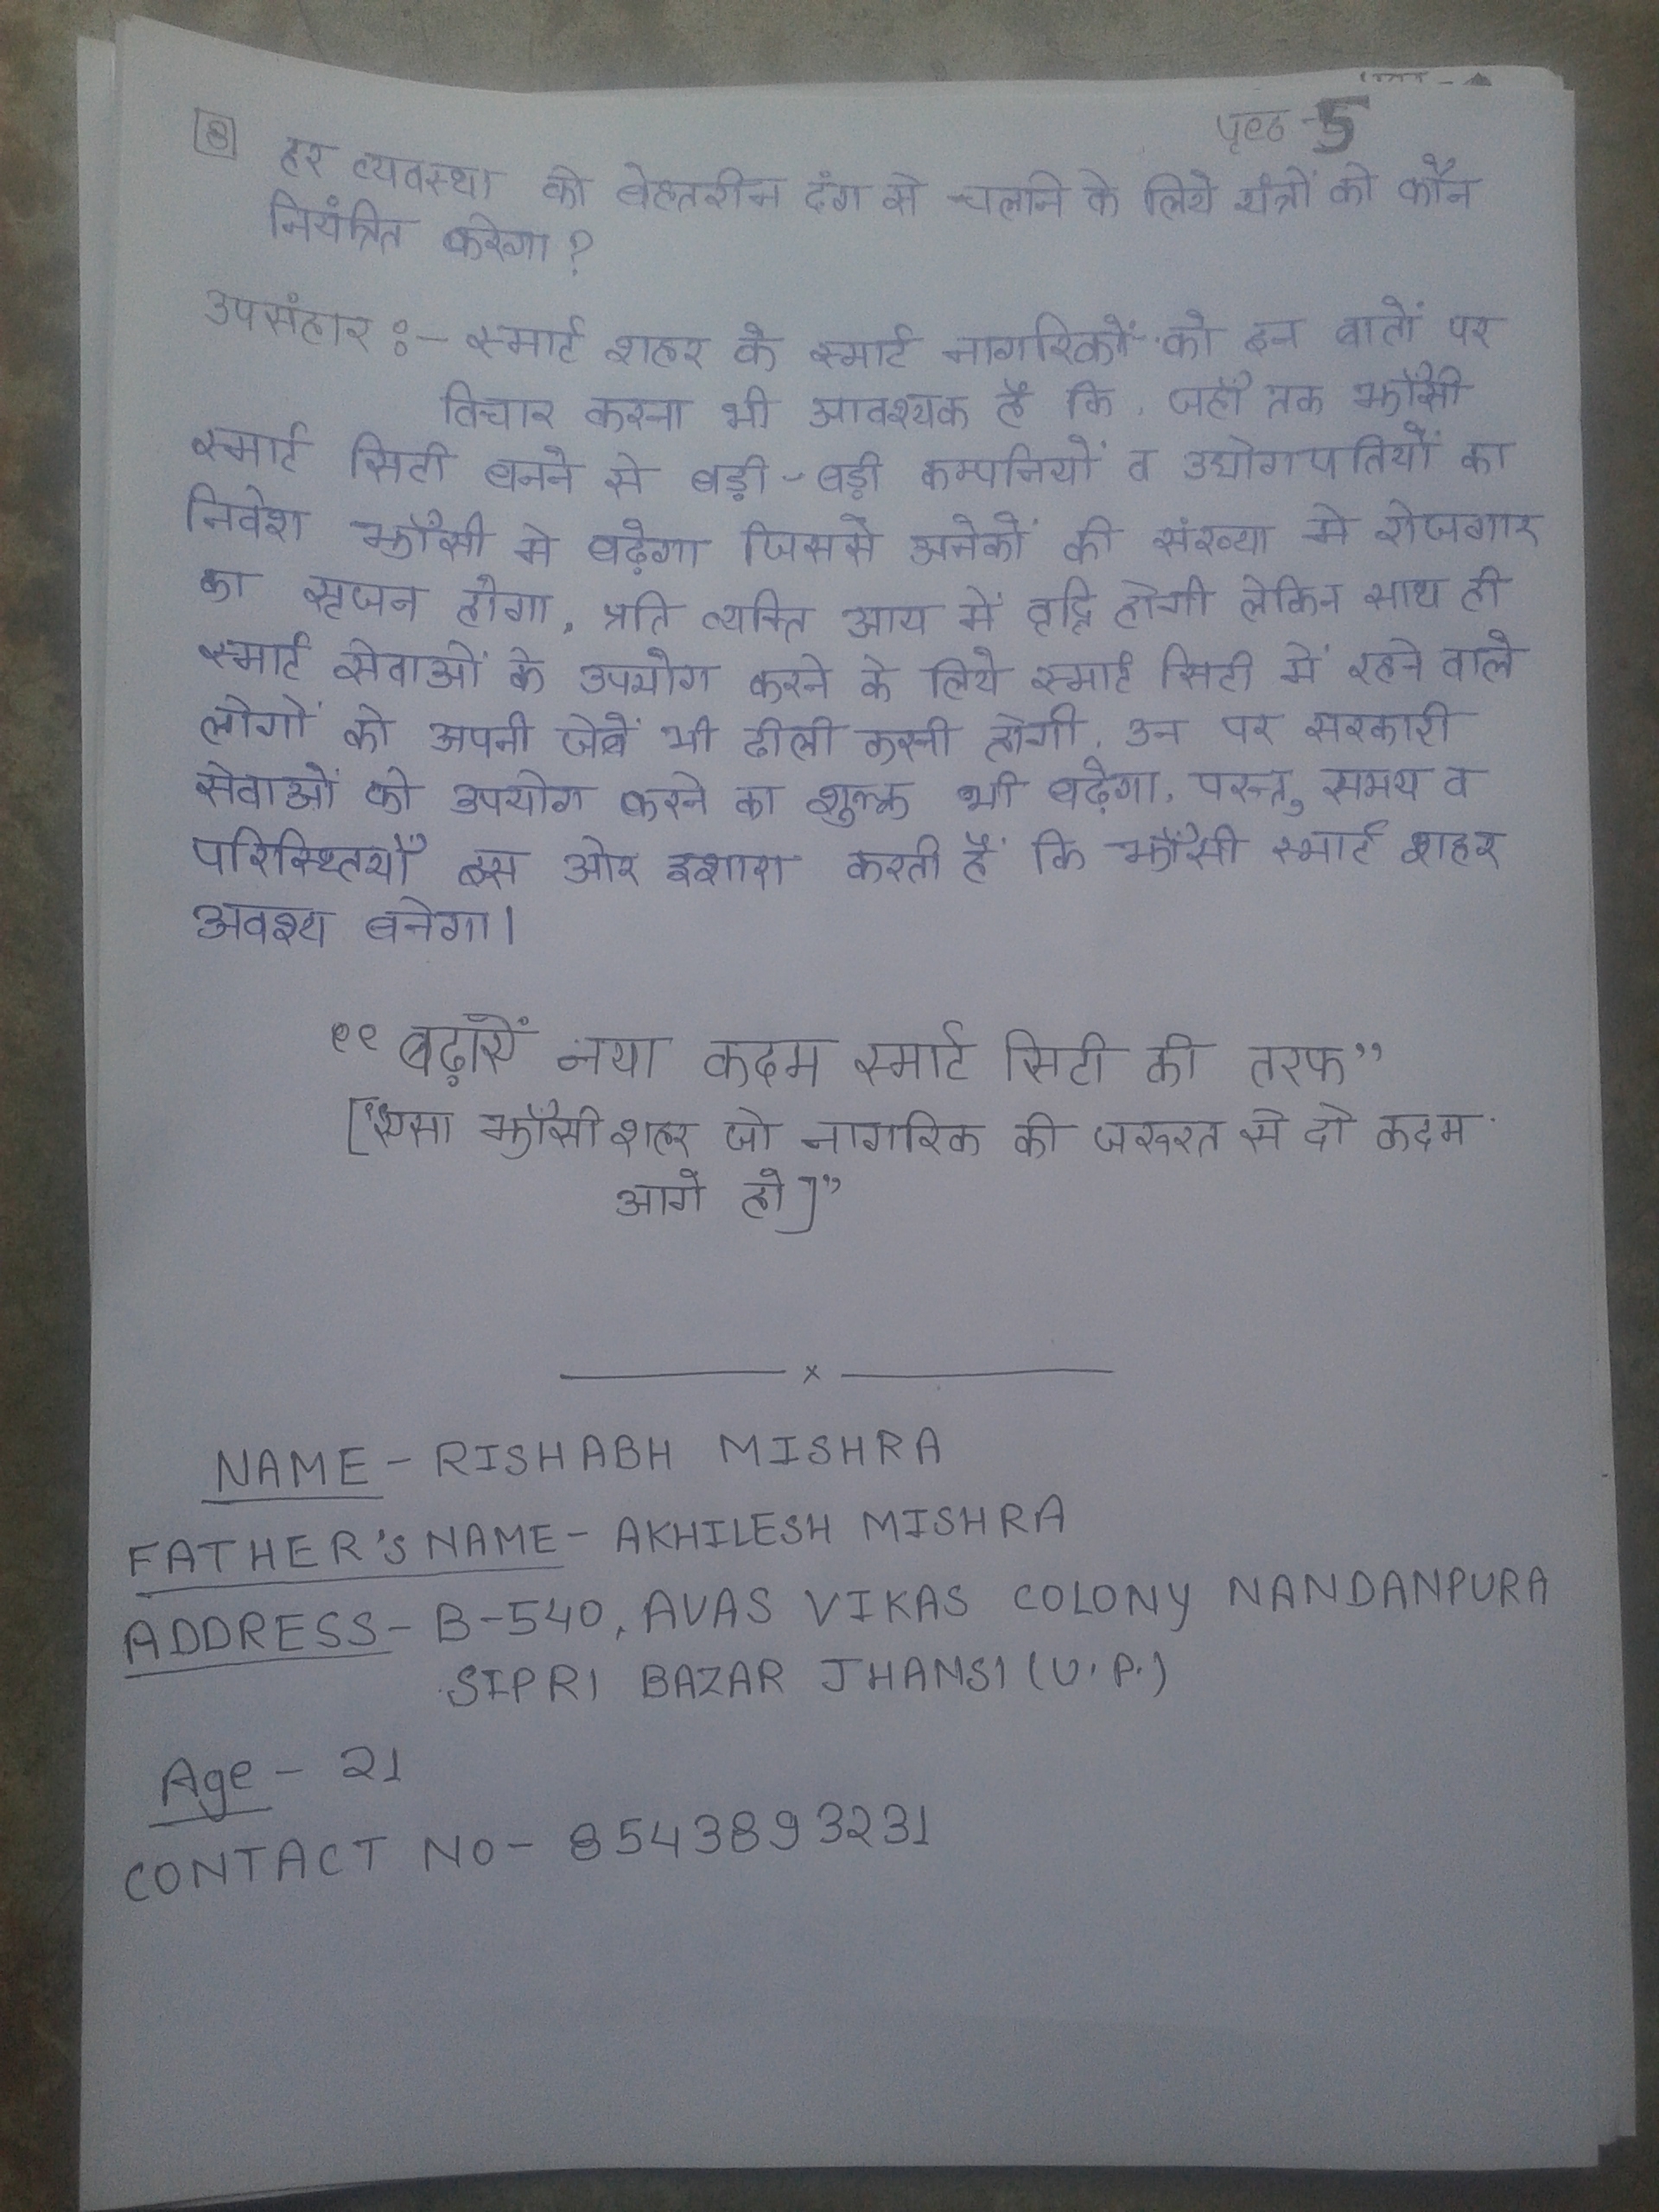 पृष्ठ-5
8 हर व्यवस्था को बेहतरीन ढंग से चलाने के लिये यंत्रों को कौन
नियंत्रित करेगा?
उपसंहार :- स्मार्ट शहर के स्मार्ट नागरिकों को इन बातों पर
विचार करना भी आवश्यक है कि, जहाँ तक झाँसी
स्मार्ट सिटी बनने से बड़ी-बड़ी कम्पनियों व उद्योगपतियों का
निवेश झाँसी मे बढ़ेगा जिससे अनेकों की संख्या मे रोजगार
का सृजन होगा, प्रति व्यक्ति आय में वृद्धि होगी लेकिन साथ ही
स्मार्ट सेवाओं के उपयोग करने के लिये स्मार्ट सिटी में रहने वाले
लोगों को अपनी जेबें भी ढीली करनी होगी, उन पर सरकारी
सेवाओं को उपयोग करने का शुल्क भी बढ़ेगा, परन्तु समय व
परिस्थितयाँ इस ओर इशारा करती हैं कि झाँसी स्मार्ट शहर
अवश्य बनेगा।
“बढ़ाऐं नया कदम स्मार्ट सिटी की तरफ”
[“ऐसा झाँसी शहर जो नागरिक की जरूरत से दो कदम
आगे हो]”
x
NAME - RISHABH MISHRA
FATHER'S NAME - AKHILESH MISHRA
ADDRESS - B-540, AVAS VIKAS COLONY NANDANPURA
SIPRI BAZAR JHANSI (U.P.)
Age - 21
CONTACT NO - 8543893231